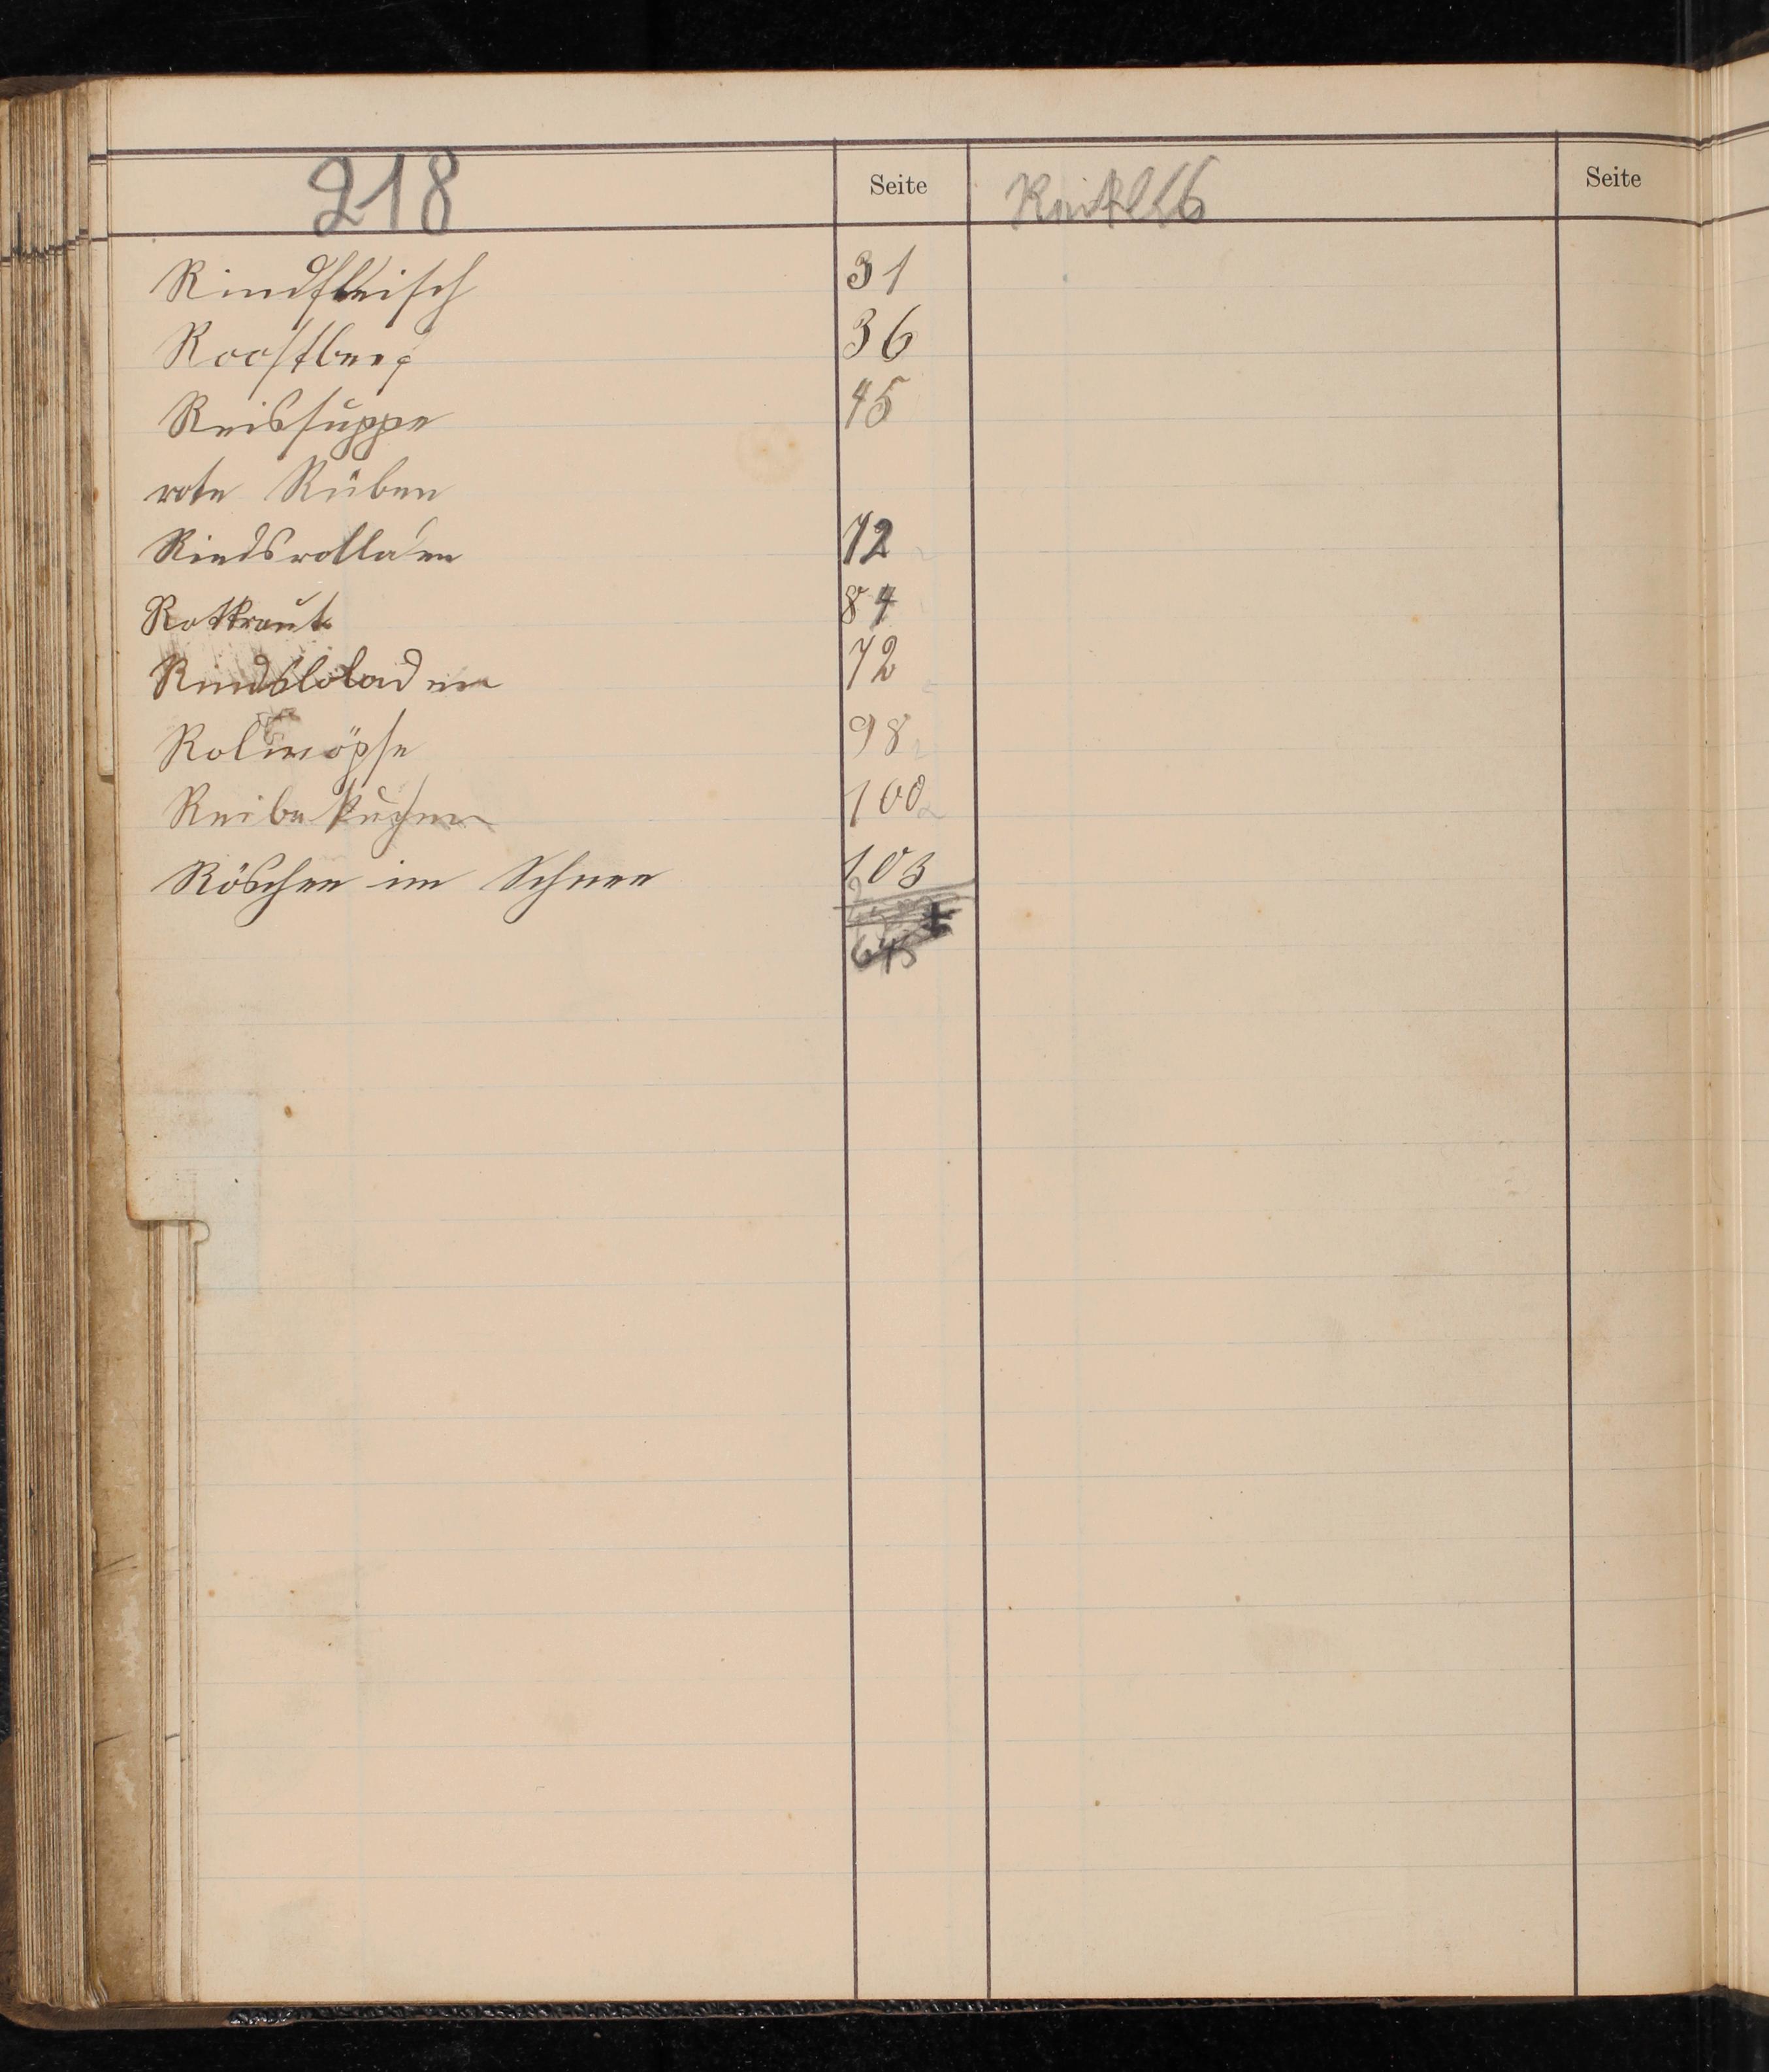 218 Seite Seite
Rindfleisch 31
Roostberf 36
Reissuppe 45
rote Rüben
Rindsrolladen 72
Rotkraut 84
Rindsloladen 72
Rolmöpse 98
Reibekuchen 100
Röschen im Schnee 103
645